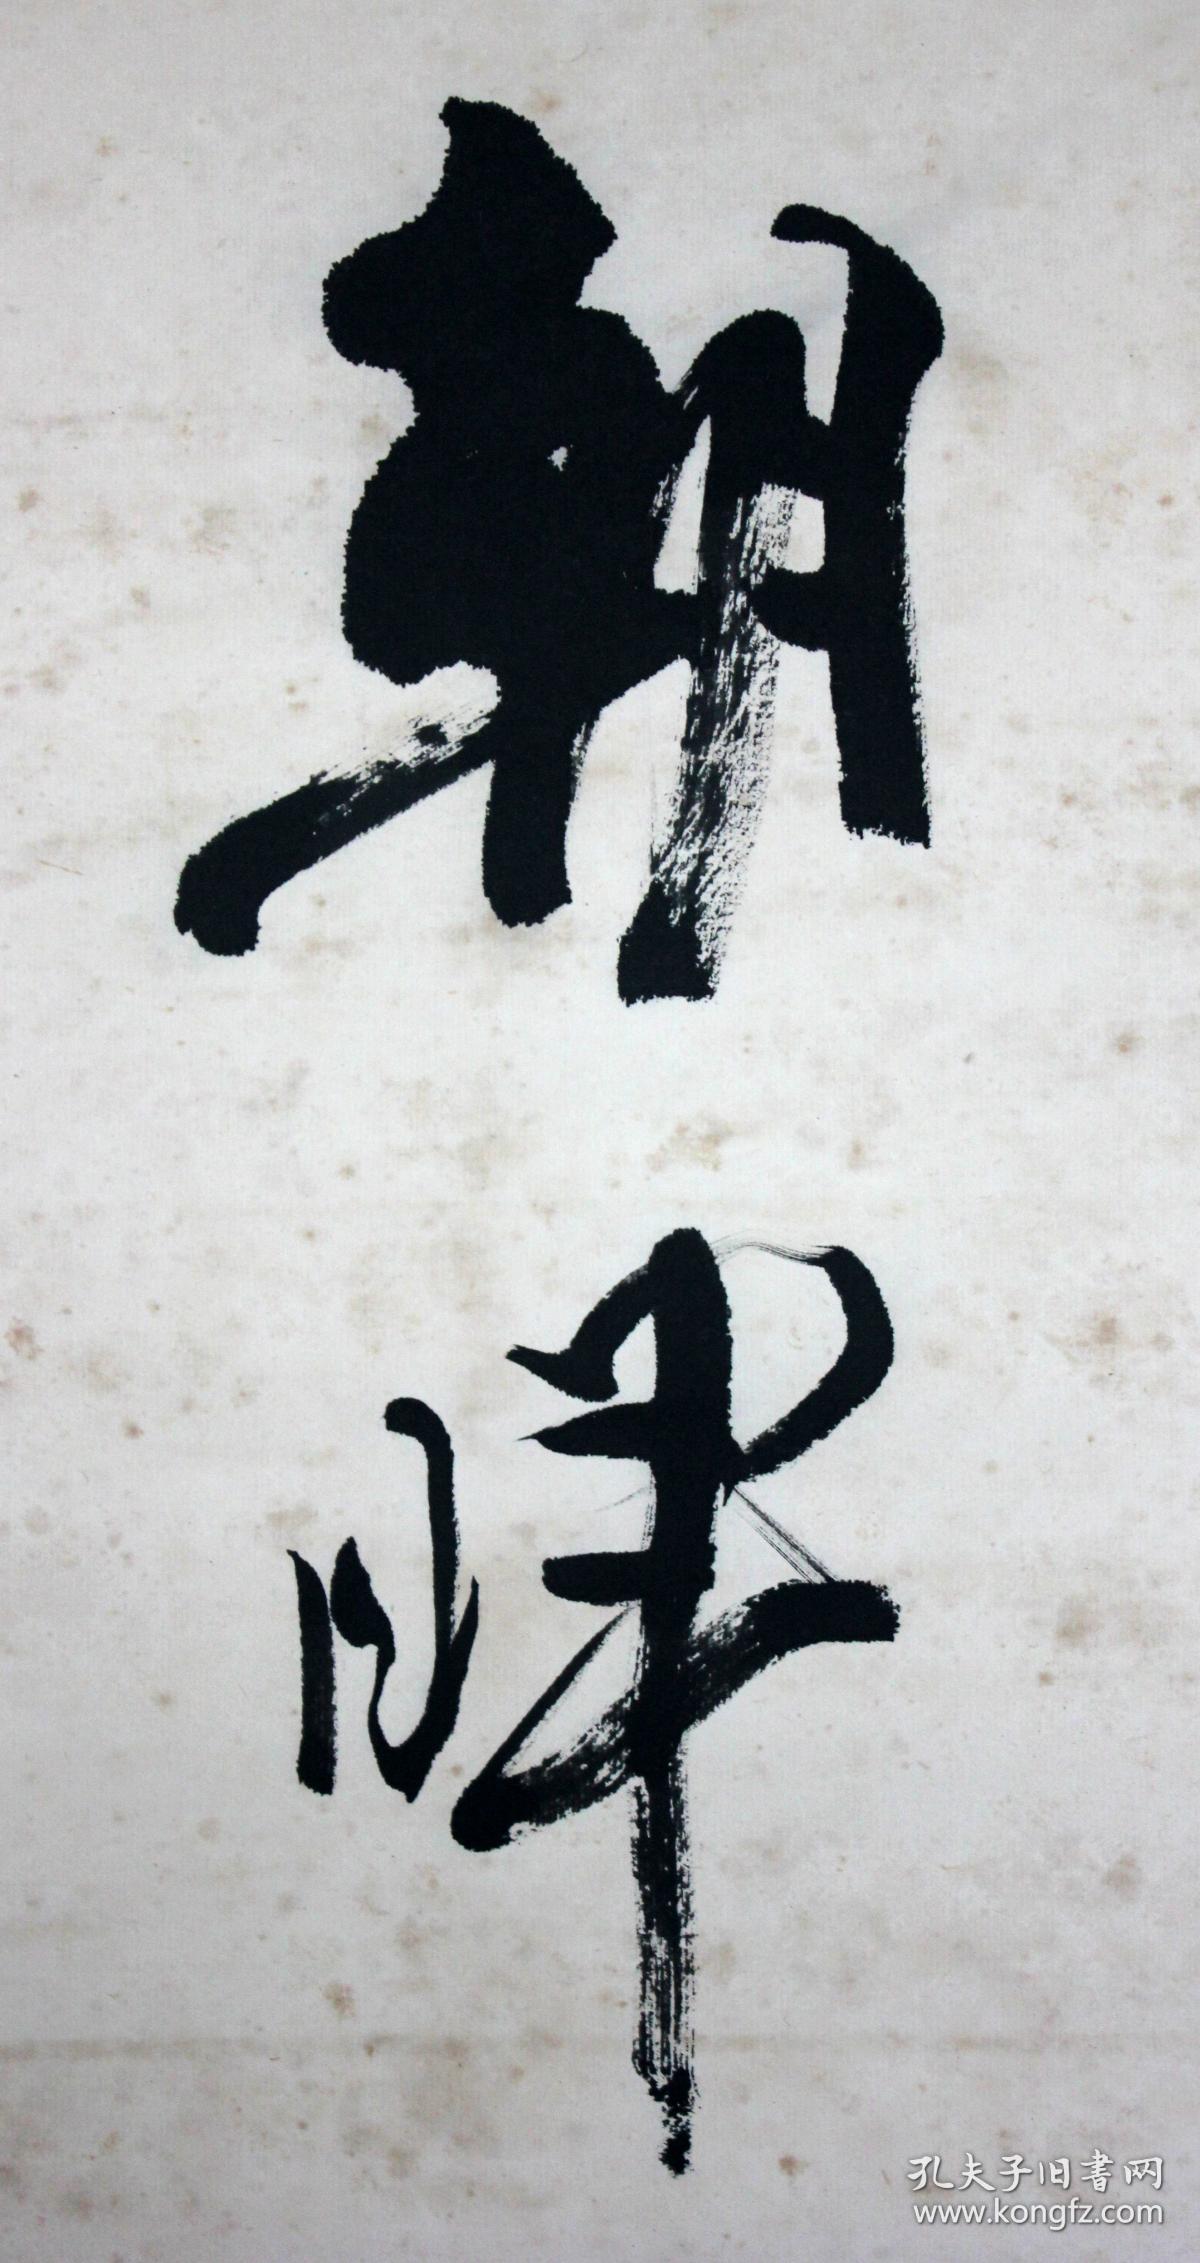 朝暉
孔夫子旧書网
www.kongfz.com